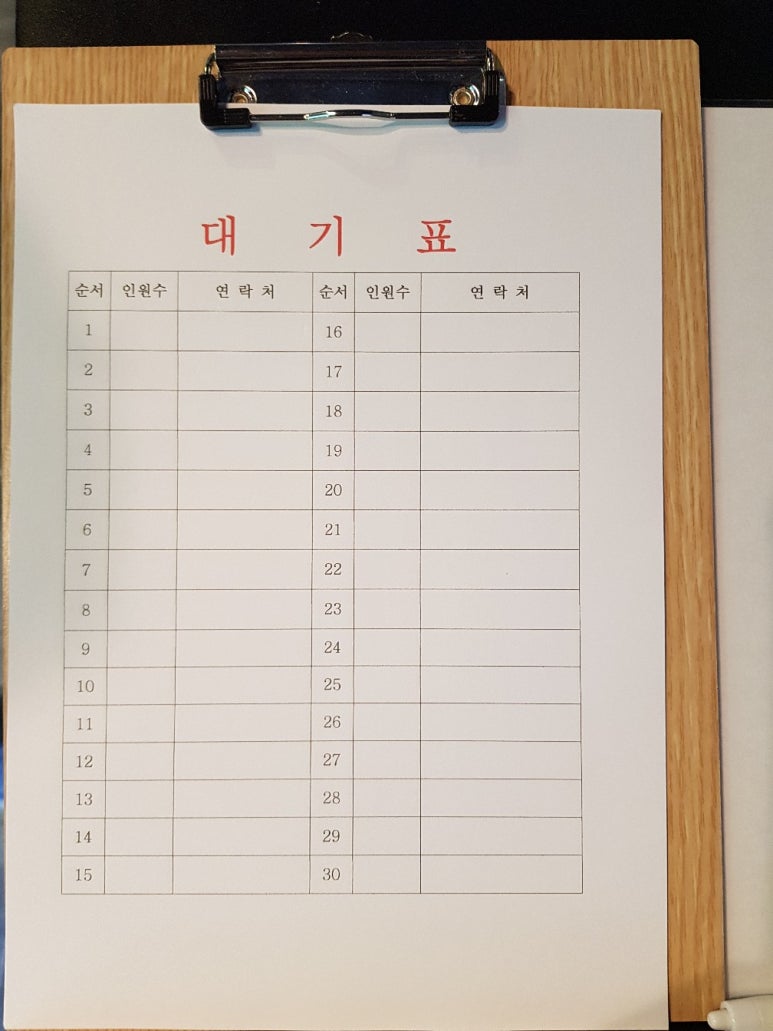 대 기 표
순서 인원수 연 락 처 순서 인원수 연 락 처
1 16
2 17
3 18
4 19
5 20
6 21
7 22
8 23
9 24
10 25
11 26
12 27
13 28
14 29
15 30